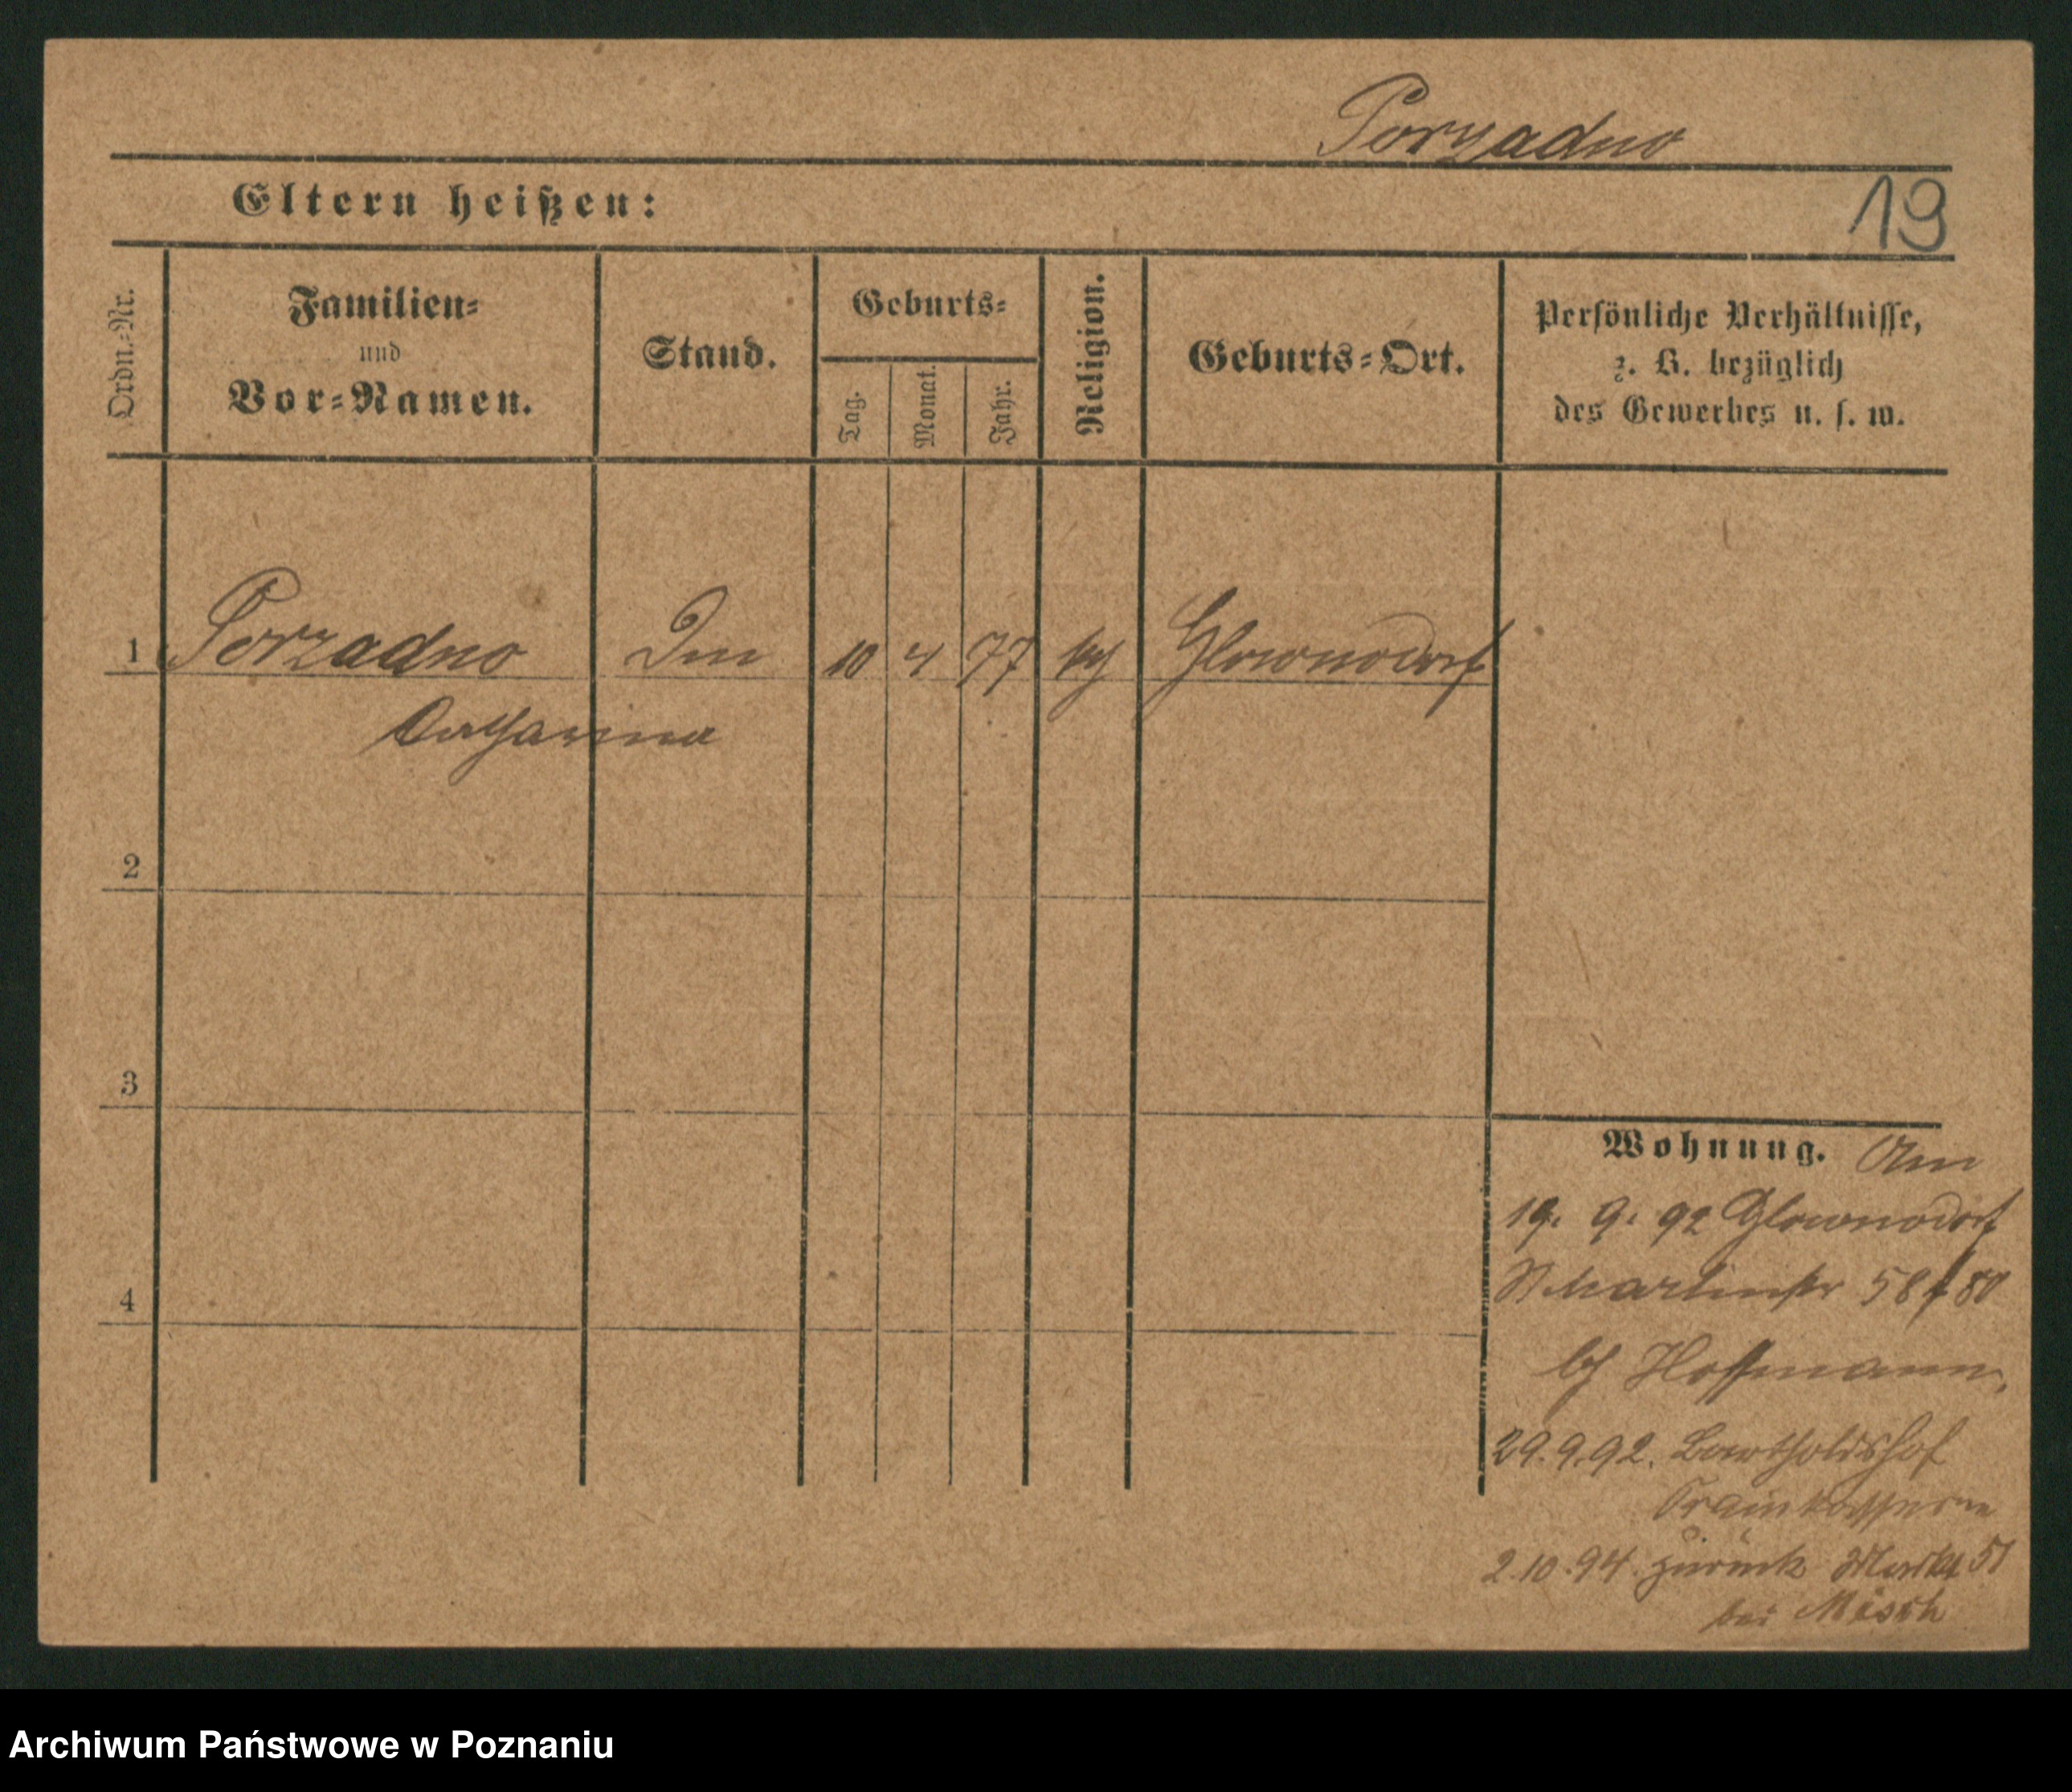 Porzadno
Eltern heißen:
19
Ordn.-Nr.
Familien-
und
Vor-Namen.
Stand.
Geburts-
Tag.
Monat.
Jahr.
Religion.
Geburts-Ort.
Persönliche Verhältnisse,
z. B. bezüglich
des Gewerbes u. s. w.
1 Porzadno 10 4 77 Glownodorf
Catharina
2
3
4
Wohnung.
19. 9. 92 Glownodorf
St Martinstr 58 80
Hoffmann
29.9.92. Bartholdshof
Trainkasserne
2.10.94. zurück Markt 51
bei Misch
Archiwum Państwowe w Poznaniu